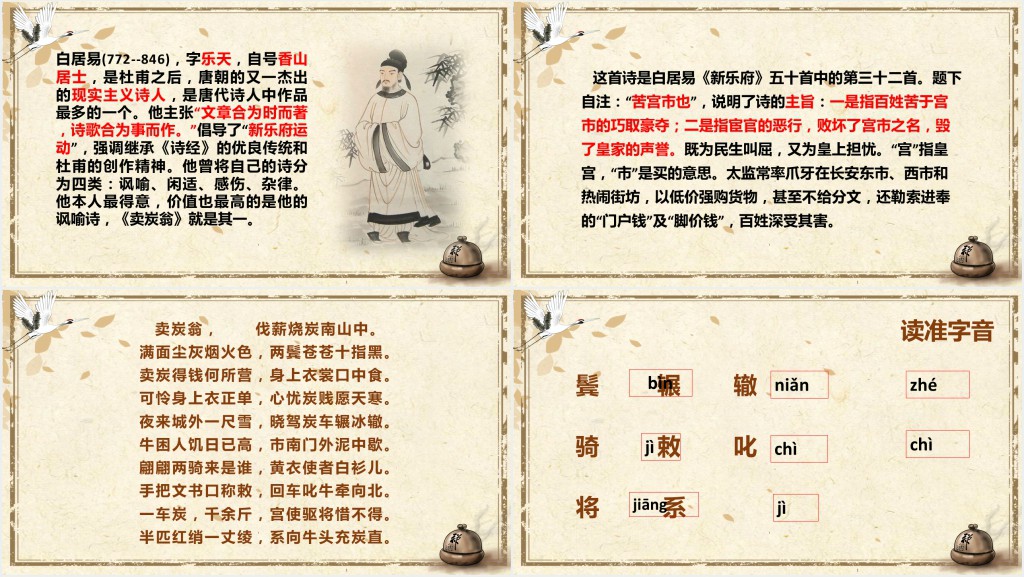 白居易(772--846)，字乐天，自号香山
居士，是杜甫之后，唐朝的又一杰出
的现实主义诗人，是唐代诗人中作品
最多的一个。他主张“文章合为时而著
，诗歌合为事而作。”倡导了“新乐府运
动”，强调继承《诗经》的优良传统和
杜甫的创作精神。他曾将自己的诗分
为四类：讽喻、闲适、感伤、杂律。
他本人最得意，价值也最高的是他的
讽喻诗，《卖炭翁》就是其一。
这首诗是白居易《新乐府》五十首中的第三十二首。题下
自注：“苦宫市也”，说明了诗的主旨：一是指百姓苦于宫
市的巧取豪夺；二是指宦官的恶行，败坏了宫市之名，毁
了皇家的声誉。既为民生叫屈，又为皇上担忧。“宫”指皇
宫，“市”是买的意思。太监常率爪牙在长安东市、西市和
热闹街坊，以低价强购货物，甚至不给分文，还勒索进奉
的“门户钱”及“脚价钱”，百姓深受其害。
卖炭翁， 伐薪烧炭南山中。
满面尘灰烟火色，两鬓苍苍十指黑。
卖炭得钱何所营，身上衣裳口中食。
可怜身上衣正单，心忧炭贱愿天寒。
夜来城外一尺雪，晓驾炭车辗冰辙。
牛困人饥日已高，市南门外泥中歇。
翩翩两骑来是谁，黄衣使者白衫儿。
手把文书口称敕，回车叱牛牵向北。
一车炭，千余斤，宫使驱将惜不得。
半匹红绡一丈绫，系向牛头充炭直。
读准字音
鬓 bìn 辗 辙 niǎn zhé
骑 jì 敕 叱 chì chì
将 jiāng 系 jì
祥
祥
祥
祥